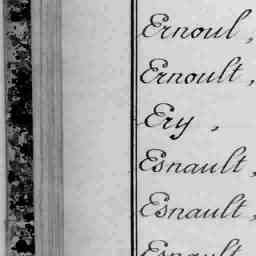 Ernoul,
Ernoult,
Ery,
Esnault,
Esnault,
Esnault